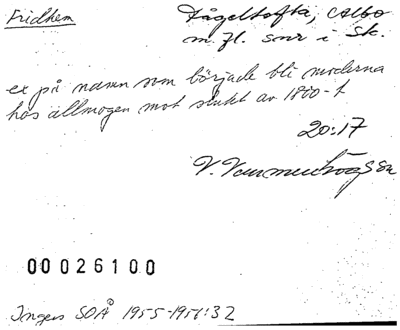 Fridhem
Fågeltofta, Albo
m. fl. snr i Sk.
ex på namn som började bli moderna
hos allmogen mot slutet av 1800-t
20:17
V.
00026100
Ingers SOÅ 1955-1957:32